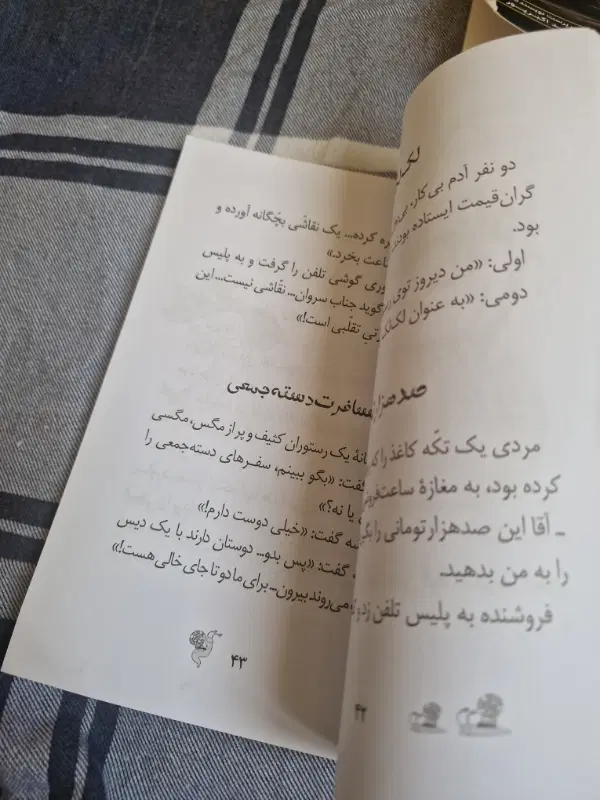 دو نفر آدم بی‌کار،
گران‌قیمت ایستاده بودند
بود.
اولی: «من دیروز توی
دومی: «به عنوان
صدهزار
مردی یک تکّه کاغذ را که
کرده بود، به مغازهٔ ساعت‌فروشی
ـ آقا این صدهزار تومانی را بگیر
را به من بدهید.
فروشنده به پلیس تلفن زد و
۴۲
کرده... یک نقاشی بچّگانه آورده و
ساعت بخرد.»
گوشی تلفن را گرفت و به پلیس
گوید جناب سروان... نقّاشی نیست... این
تقلّبی است!»
مسافرت دسته‌جمعی
یک رستوران کثیف و پر از مگس، مگسی
گفت: «بگو ببینم، سفرهای دسته‌جمعی را
یا نه؟»
گفت: «خیلی دوست دارم!»
گفت: «پس بدو... دوستان دارند با یک دیس
می‌روند بیرون... برای ما دو تا جای خالی هست!»
۴۳